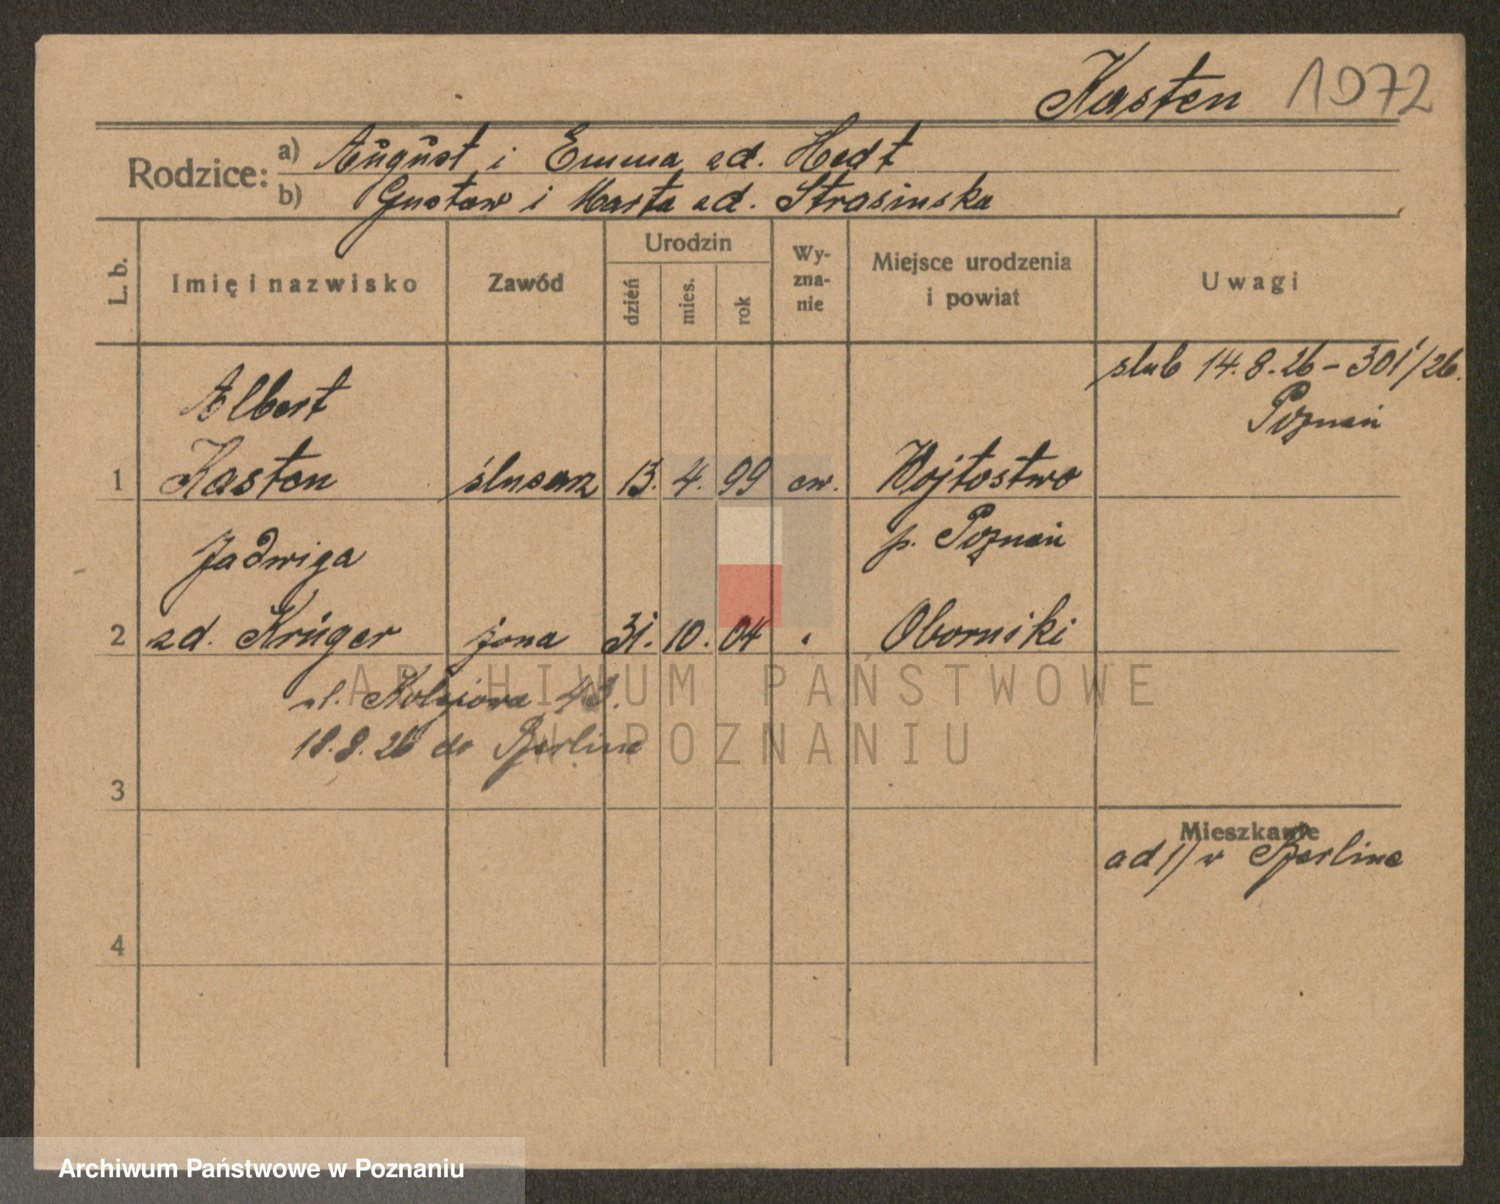 Kasten 1072
Rodzice: a) August i Emma zd. Hedt
b) Gustaw i Marta zd. Strasinska
L. b.
Imię i nazwisko
Zawód
Urodzin
dzień
mies.
rok
Wy-
zna-
nie
Miejsce urodzenia
i powiat
Uwagi
ślub 14.8.26 - 301/26.
Poznań
Albert
1 Kasten ślusarz 13. 4. 99 ew. Wojtostwo
p. Poznań
Jadwiga
2 zd. Krüger żona 31. 10. 04 " Oborniki
ul. Kolejowa 43.
18.8.26 do Berlina
3
Mieszkanie
ad 1) w Berlinie
4
ARCHIWUM PAŃSTWOWE
W POZNANIU
Archiwum Państwowe w Poznaniu